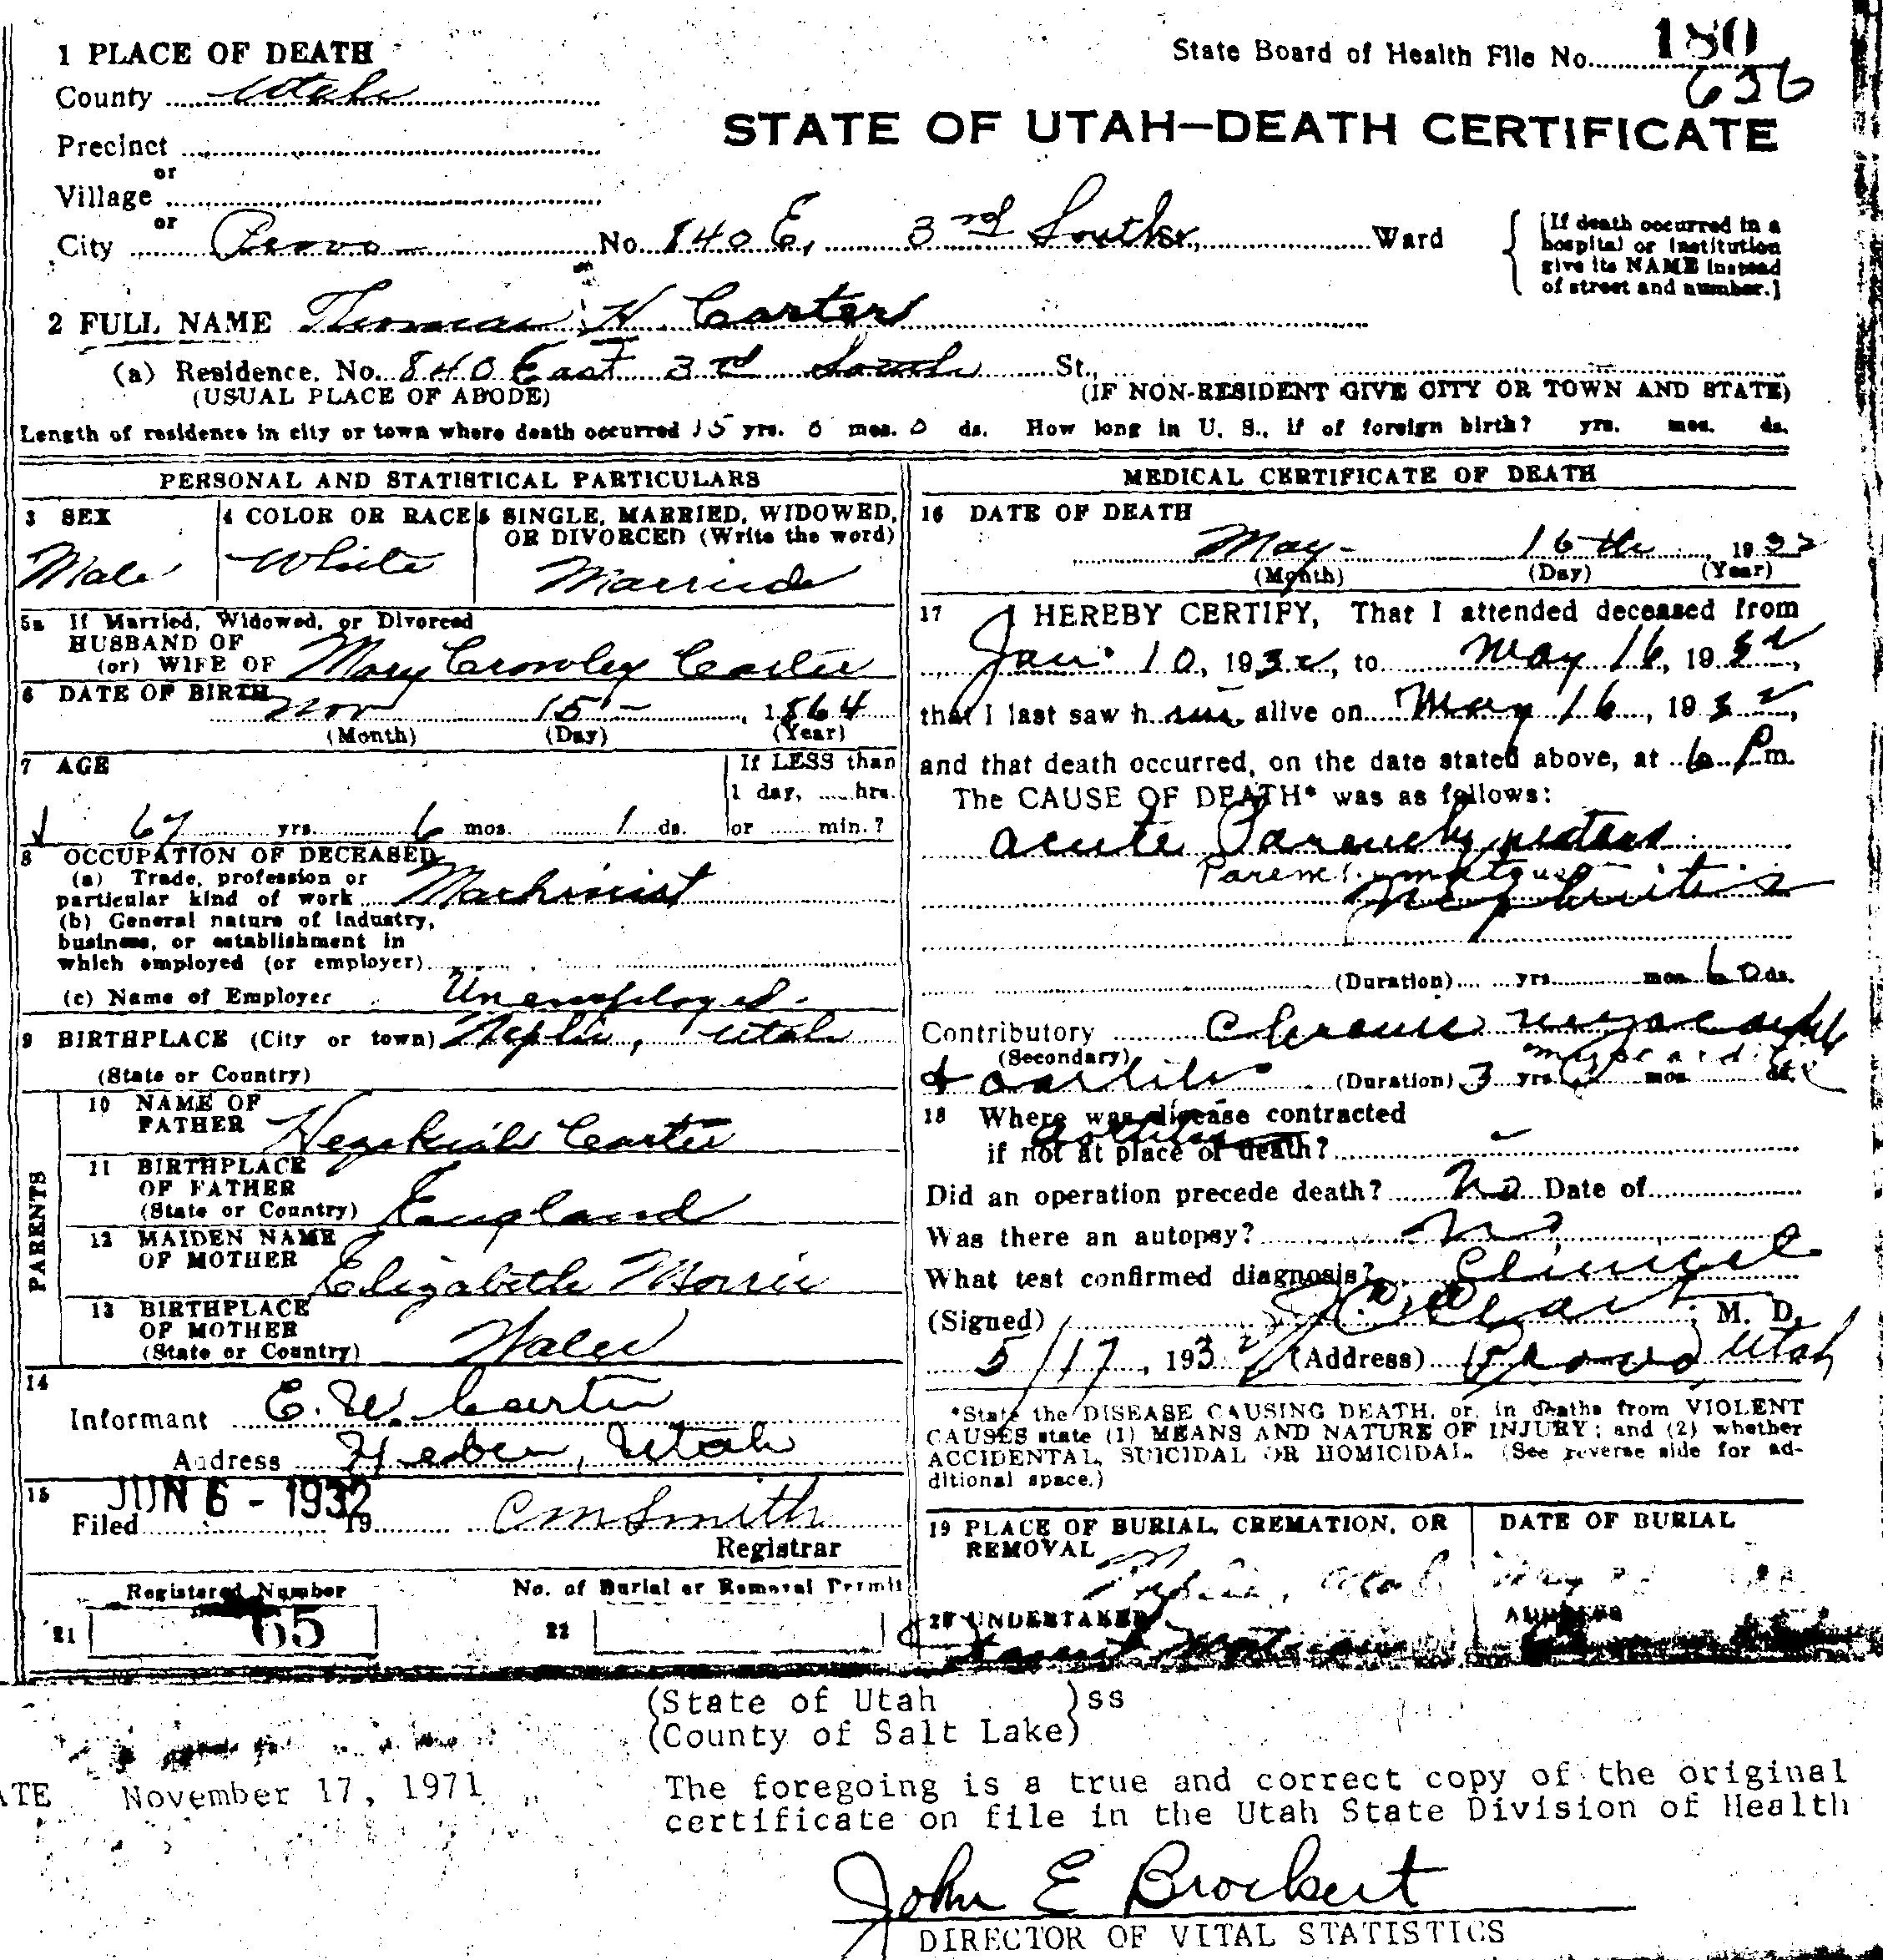 1 PLACE OF DEATH
State Board of Health File No. 180
636
County Utah
STATE OF UTAH—DEATH CERTIFICATE
Precinct
or
Village
or
City Provo No. 840 E. 3rd South St., Ward
[If death occurred in a
hospital or institution
give its NAME instead
of street and number.]
2 FULL NAME Thomas H. Carter
(a) Residence. No. 840 East 3rd South St.,
(USUAL PLACE OF ABODE) (IF NON-RESIDENT GIVE CITY OR TOWN AND STATE)
Length of residence in city or town where death occurred 15 yrs. 0 mos. 0 ds. How long in U. S., if of foreign birth? yrs. mos. ds.
PERSONAL AND STATISTICAL PARTICULARS
3 SEX
Male
4 COLOR OR RACE
White
5 SINGLE, MARRIED, WIDOWED,
OR DIVORCED (Write the word)
Married
5a If Married, Widowed, or Divorced
HUSBAND OF
(or) WIFE OF Mary Crowley Carter
6 DATE OF BIRTH
Nov 15 - , 1864
(Month) (Day) (Year)
7 AGE
If LESS than
1 day, hrs.
67 yrs. 6 mos. 1 ds. or min.?
8 OCCUPATION OF DECEASED
(a) Trade, profession or
particular kind of work Machinist
(b) General nature of industry,
business, or establishment in
which employed (or employer)
(c) Name of Employer Unemployed.
9 BIRTHPLACE (City or town) Nephi, Utah
(State or Country)
PARENTS
10 NAME OF
FATHER Hezekiah Carter
11 BIRTHPLACE
OF FATHER
(State or Country) England
12 MAIDEN NAME
OF MOTHER Elizabeth Morris
13 BIRTHPLACE
OF MOTHER
(State or Country) Wales
14
Informant E. W. Carter
Address Heber, Utah
15 JUN 6 - 1932
Filed 19 C M Smith
Registrar
Registered Number No. of Burial or Removal Permit
21 65 22
MEDICAL CERTIFICATE OF DEATH
16 DATE OF DEATH
May - 16th, 1932
(Month) (Day) (Year)
17 I HEREBY CERTIFY, That I attended deceased from
Jan. 10, 1932, to May 16, 1932,
that I last saw h im alive on May 16, 1932,
and that death occurred, on the date stated above, at 6 P m.
The CAUSE OF DEATH* was as follows:
acute
Nephritis
(Duration) yrs. mos. 60 ds.
Contributory Chronic
(Secondary) myocarditis
(Duration) 3 yrs. mos. ds.
18 Where was disease contracted
if not at place of death? -
Did an operation precede death? No Date of
Was there an autopsy? No
What test confirmed diagnosis? Clinical
(Signed) M. D.
5/17, 1932 (Address) Provo, Utah
*State the DISEASE CAUSING DEATH, or, in deaths from VIOLENT
CAUSES state (1) MEANS AND NATURE OF INJURY; and (2) whether
ACCIDENTAL, SUICIDAL OR HOMICIDAL. (See reverse side for ad-
ditional space.)
19 PLACE OF BURIAL, CREMATION, OR
REMOVAL
Nephi, Utah
DATE OF BURIAL
May
20 UNDERTAKER
ADDRESS
(State of Utah )ss
(County of Salt Lake)
November 17, 1971
The foregoing is a true and correct copy of the original
certificate on file in the Utah State Division of Health
John E Brockert
DIRECTOR OF VITAL STATISTICS